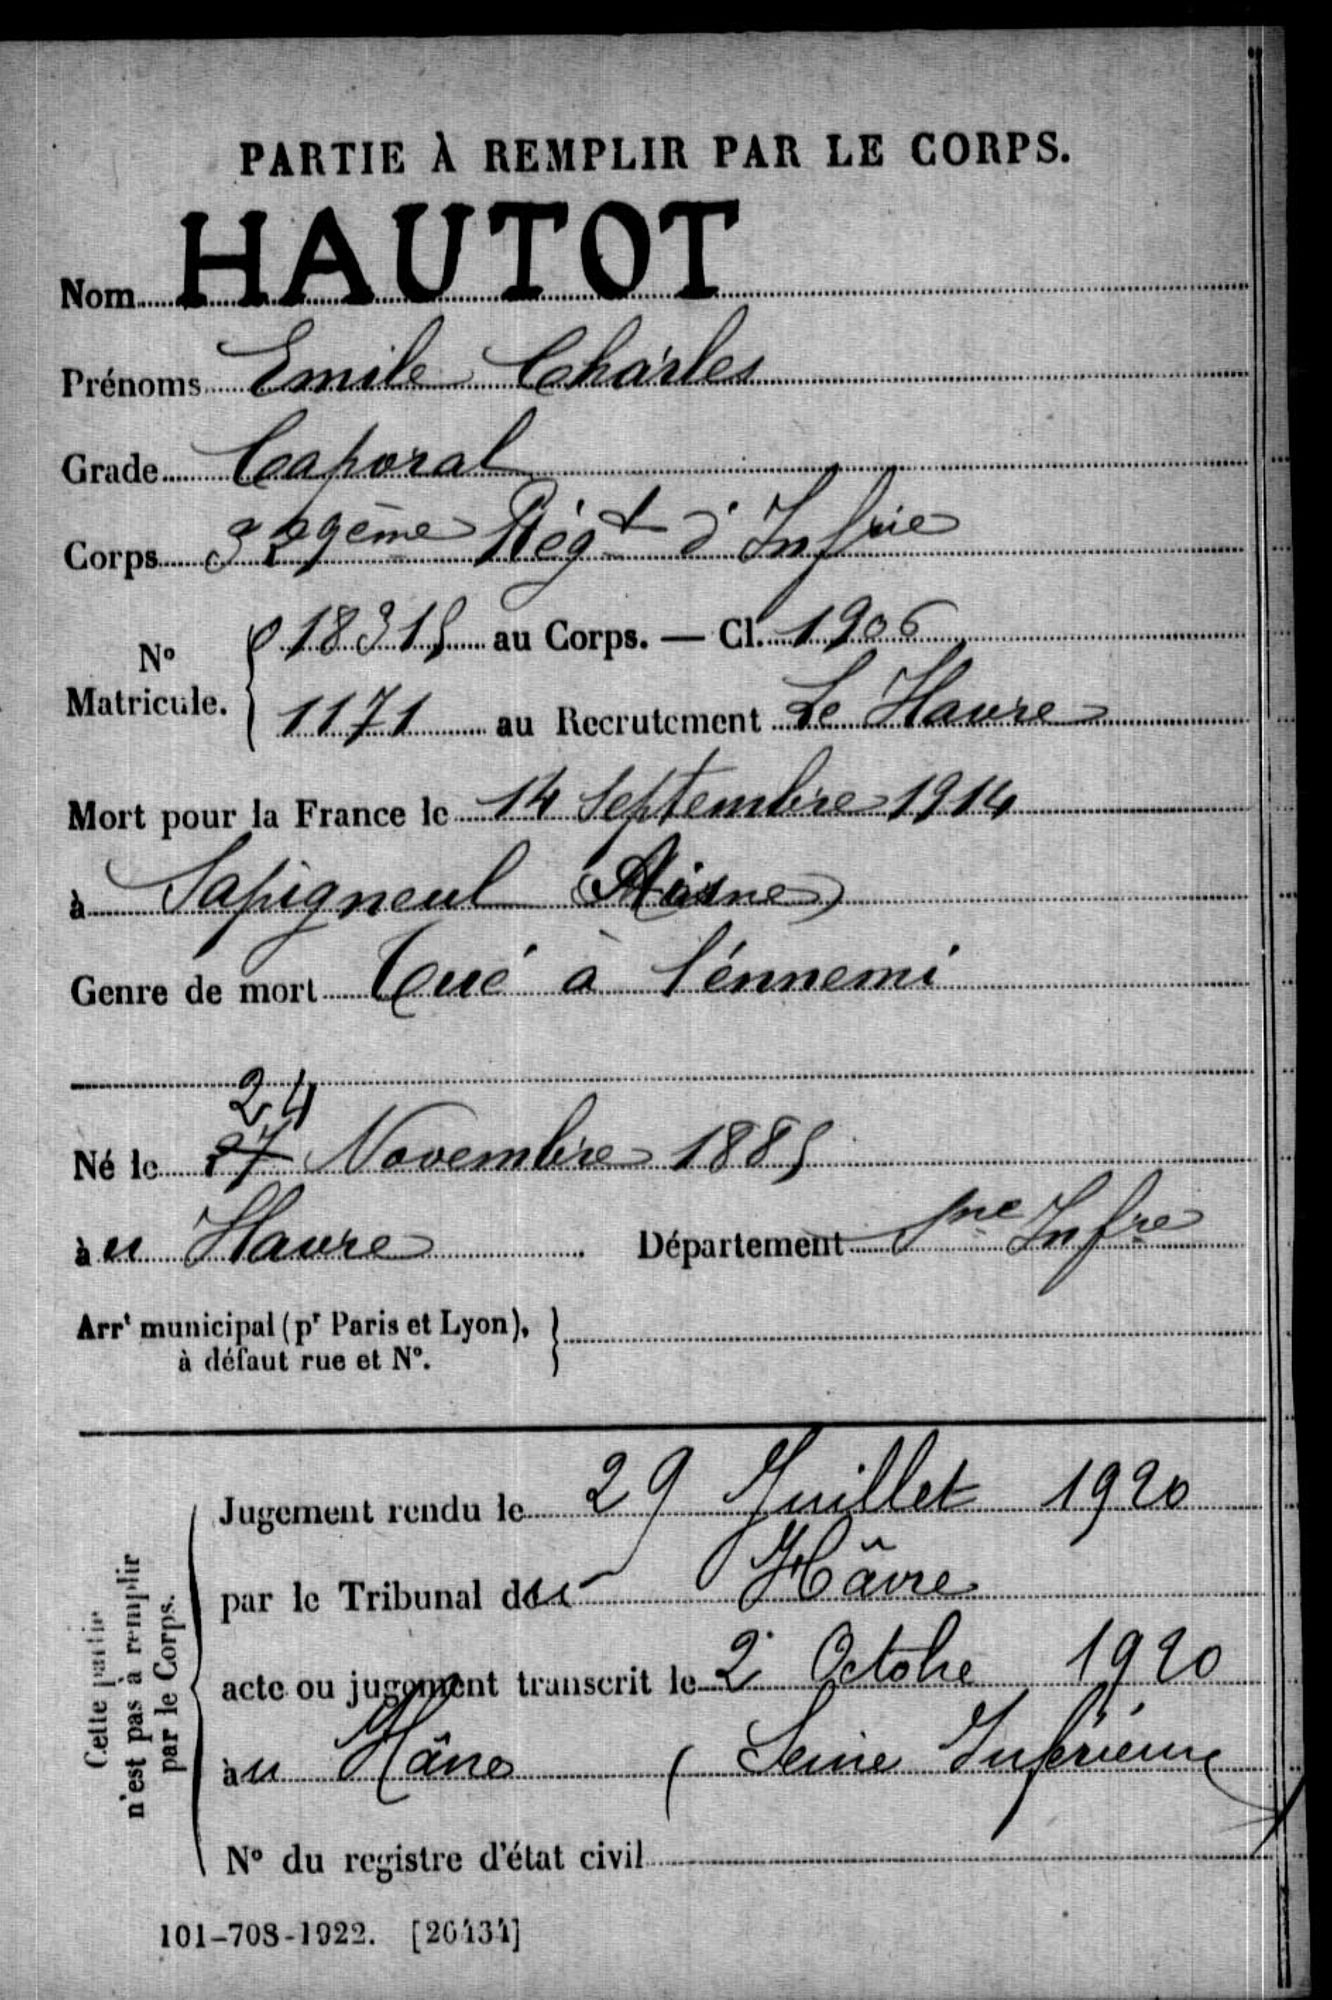 PARTIE À REMPLIR PAR LE CORPS.
Nom HAUTOT
Prénoms Emile Charles
Grade Caporal
Corps 329ème Régt d'Infrie
N° Matricule. { 018315 au Corps. — Cl. 1906
1171 au Recrutement Le Havre
Mort pour la France le 14 Septembre 1914
à Sapigneul (Aisne)
Genre de mort Tué à l'énnemi
24
Né le 27 Novembre 1885
au Havre Département Sne Infre
Arrt municipal (pr Paris et Lyon), }
à défaut rue et N°.
Cette partie
n'est pas à remplir
par le Corps.
Jugement rendu le 29 Juillet 1920
par le Tribunal du Hâvre
acte ou jugement transcrit le 2 Octobre 1920
au Hâvre (Seine Inférieure)
N° du registre d'état civil
101-708-1922. [26434]